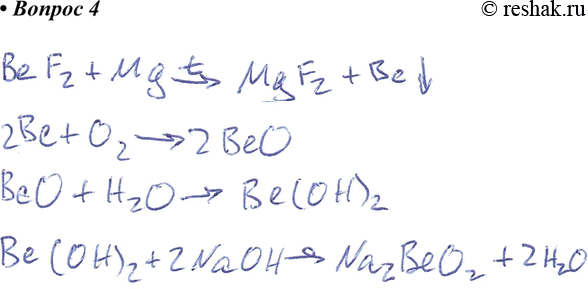 • Вопрос 4
© reshak.ru
BeF₂ + Mg →ᵗ MgF₂ + Be↓
2Be + O₂ → 2BeO
BeO + H₂O → Be(OH)₂
Be(OH)₂ + 2NaOH → Na₂BeO₂ + 2H₂O